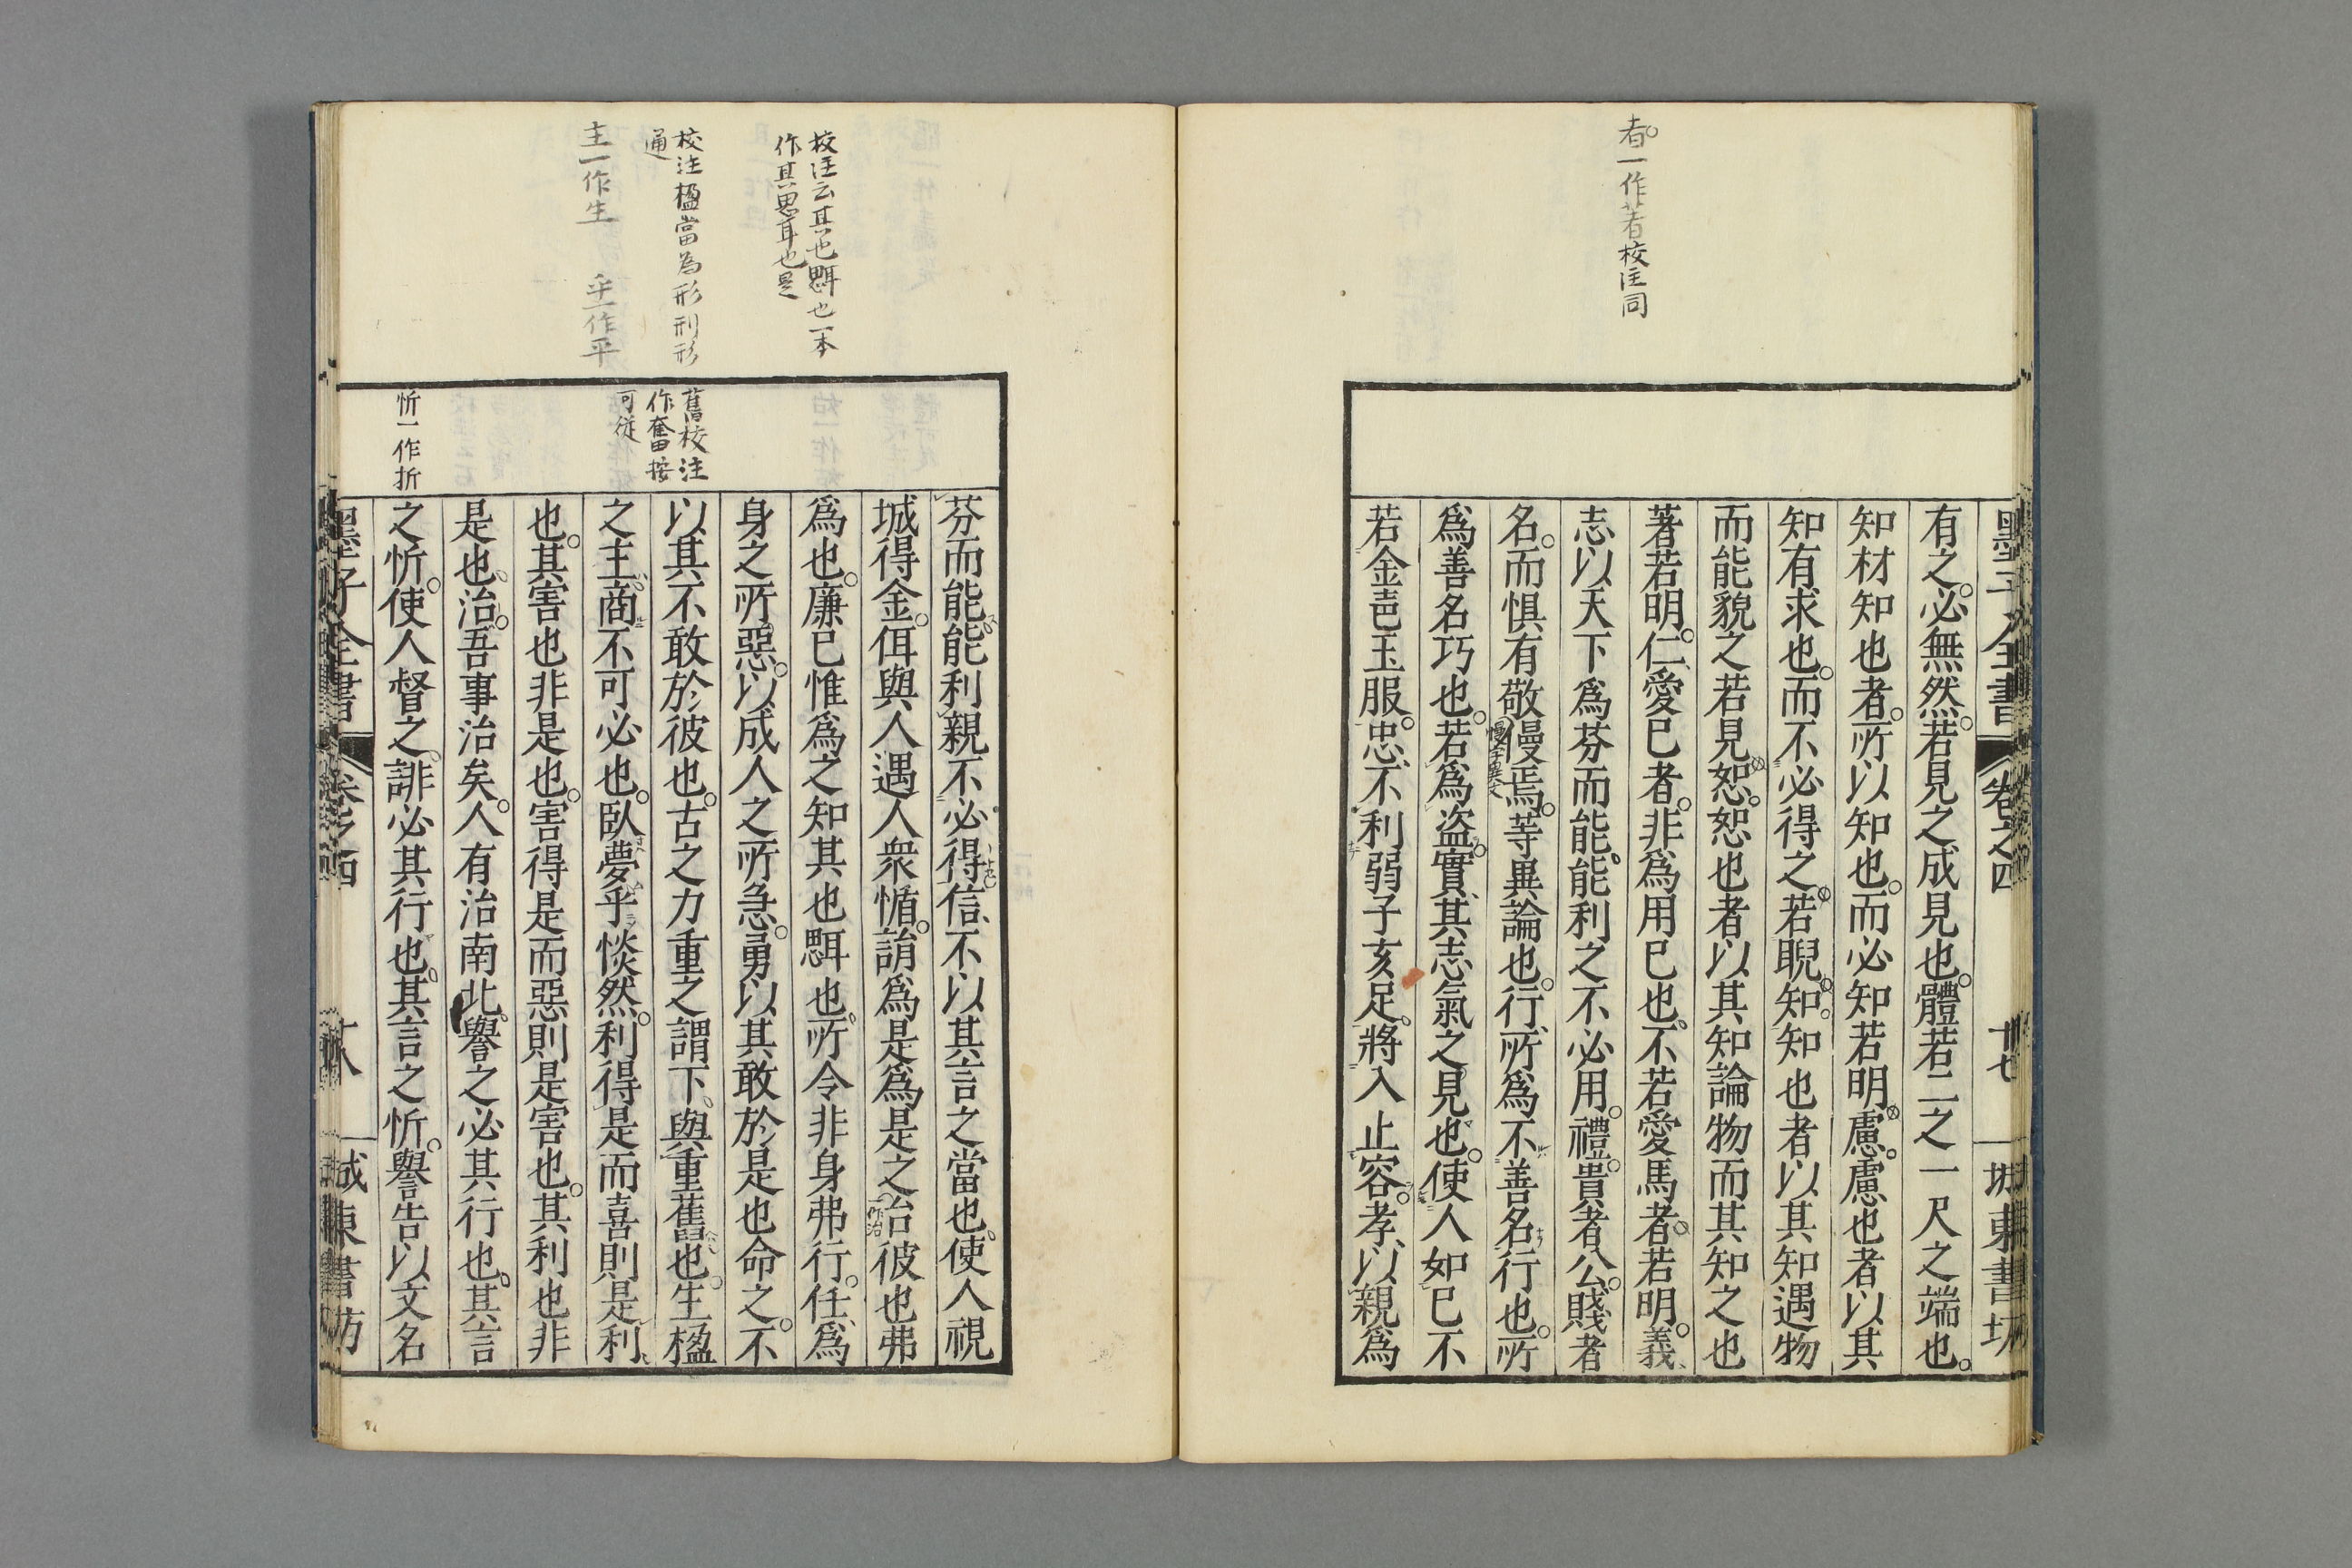 者一作著校注同
墨子全書 卷之四 十七 城東書坊
有之。必無然。若見之成見也。體若二之一尺之端也。
知材知也者。所以知也。而必知若明。慮。慮也者以其
知有求也。而不必得之。若睨。知。知也者以其知遇物
而能貌之若見。恕。恕也者以其知論物而其知之也
著若明。仁、愛已者。非爲用已也。不若愛馬者。若明。義、
志以天下爲芬而能能利之不必用。禮。貴者公。賤者
名。而惧有敬僈焉。等異論也。行、所爲不善名行也。所
慢字異文
爲善名巧也。若爲盜。實、其志氣之見也。使人如已不
若金壴玉服。忠、不利弱子亥足。將入止容。孝、以親爲
校注云其也㥷也一本
作其思耳也是
校注楹當為形刑形
通
主一作生 乎一作平
舊校注
作奮按
可從
忻一作折
芬而能能利親不必得信、不以其言之當也。使人視
城得金。佴與人遇人衆惛。䛿爲是爲是之治彼也弗
一作治
爲也。廉已惟爲之知其也㥷也。所令非身弗行。任、爲
身之所惡。以成人之所急。勇以其敢於是也命之。不
以其不敢於彼也。古之力重之謂下。與重舊也。生楹
之主。商不可必也。臥夢乎惔然。利得是而喜則是利
也。其害也非是也。害得是而惡則是害也。其利也非
是也。治。吾事治矣。人有治南北。譽之必其行也。其言
之忻。使人督之。誹必其行也。其言之忻。譽告以文名
墨子全書 卷之四 十八 城東書坊